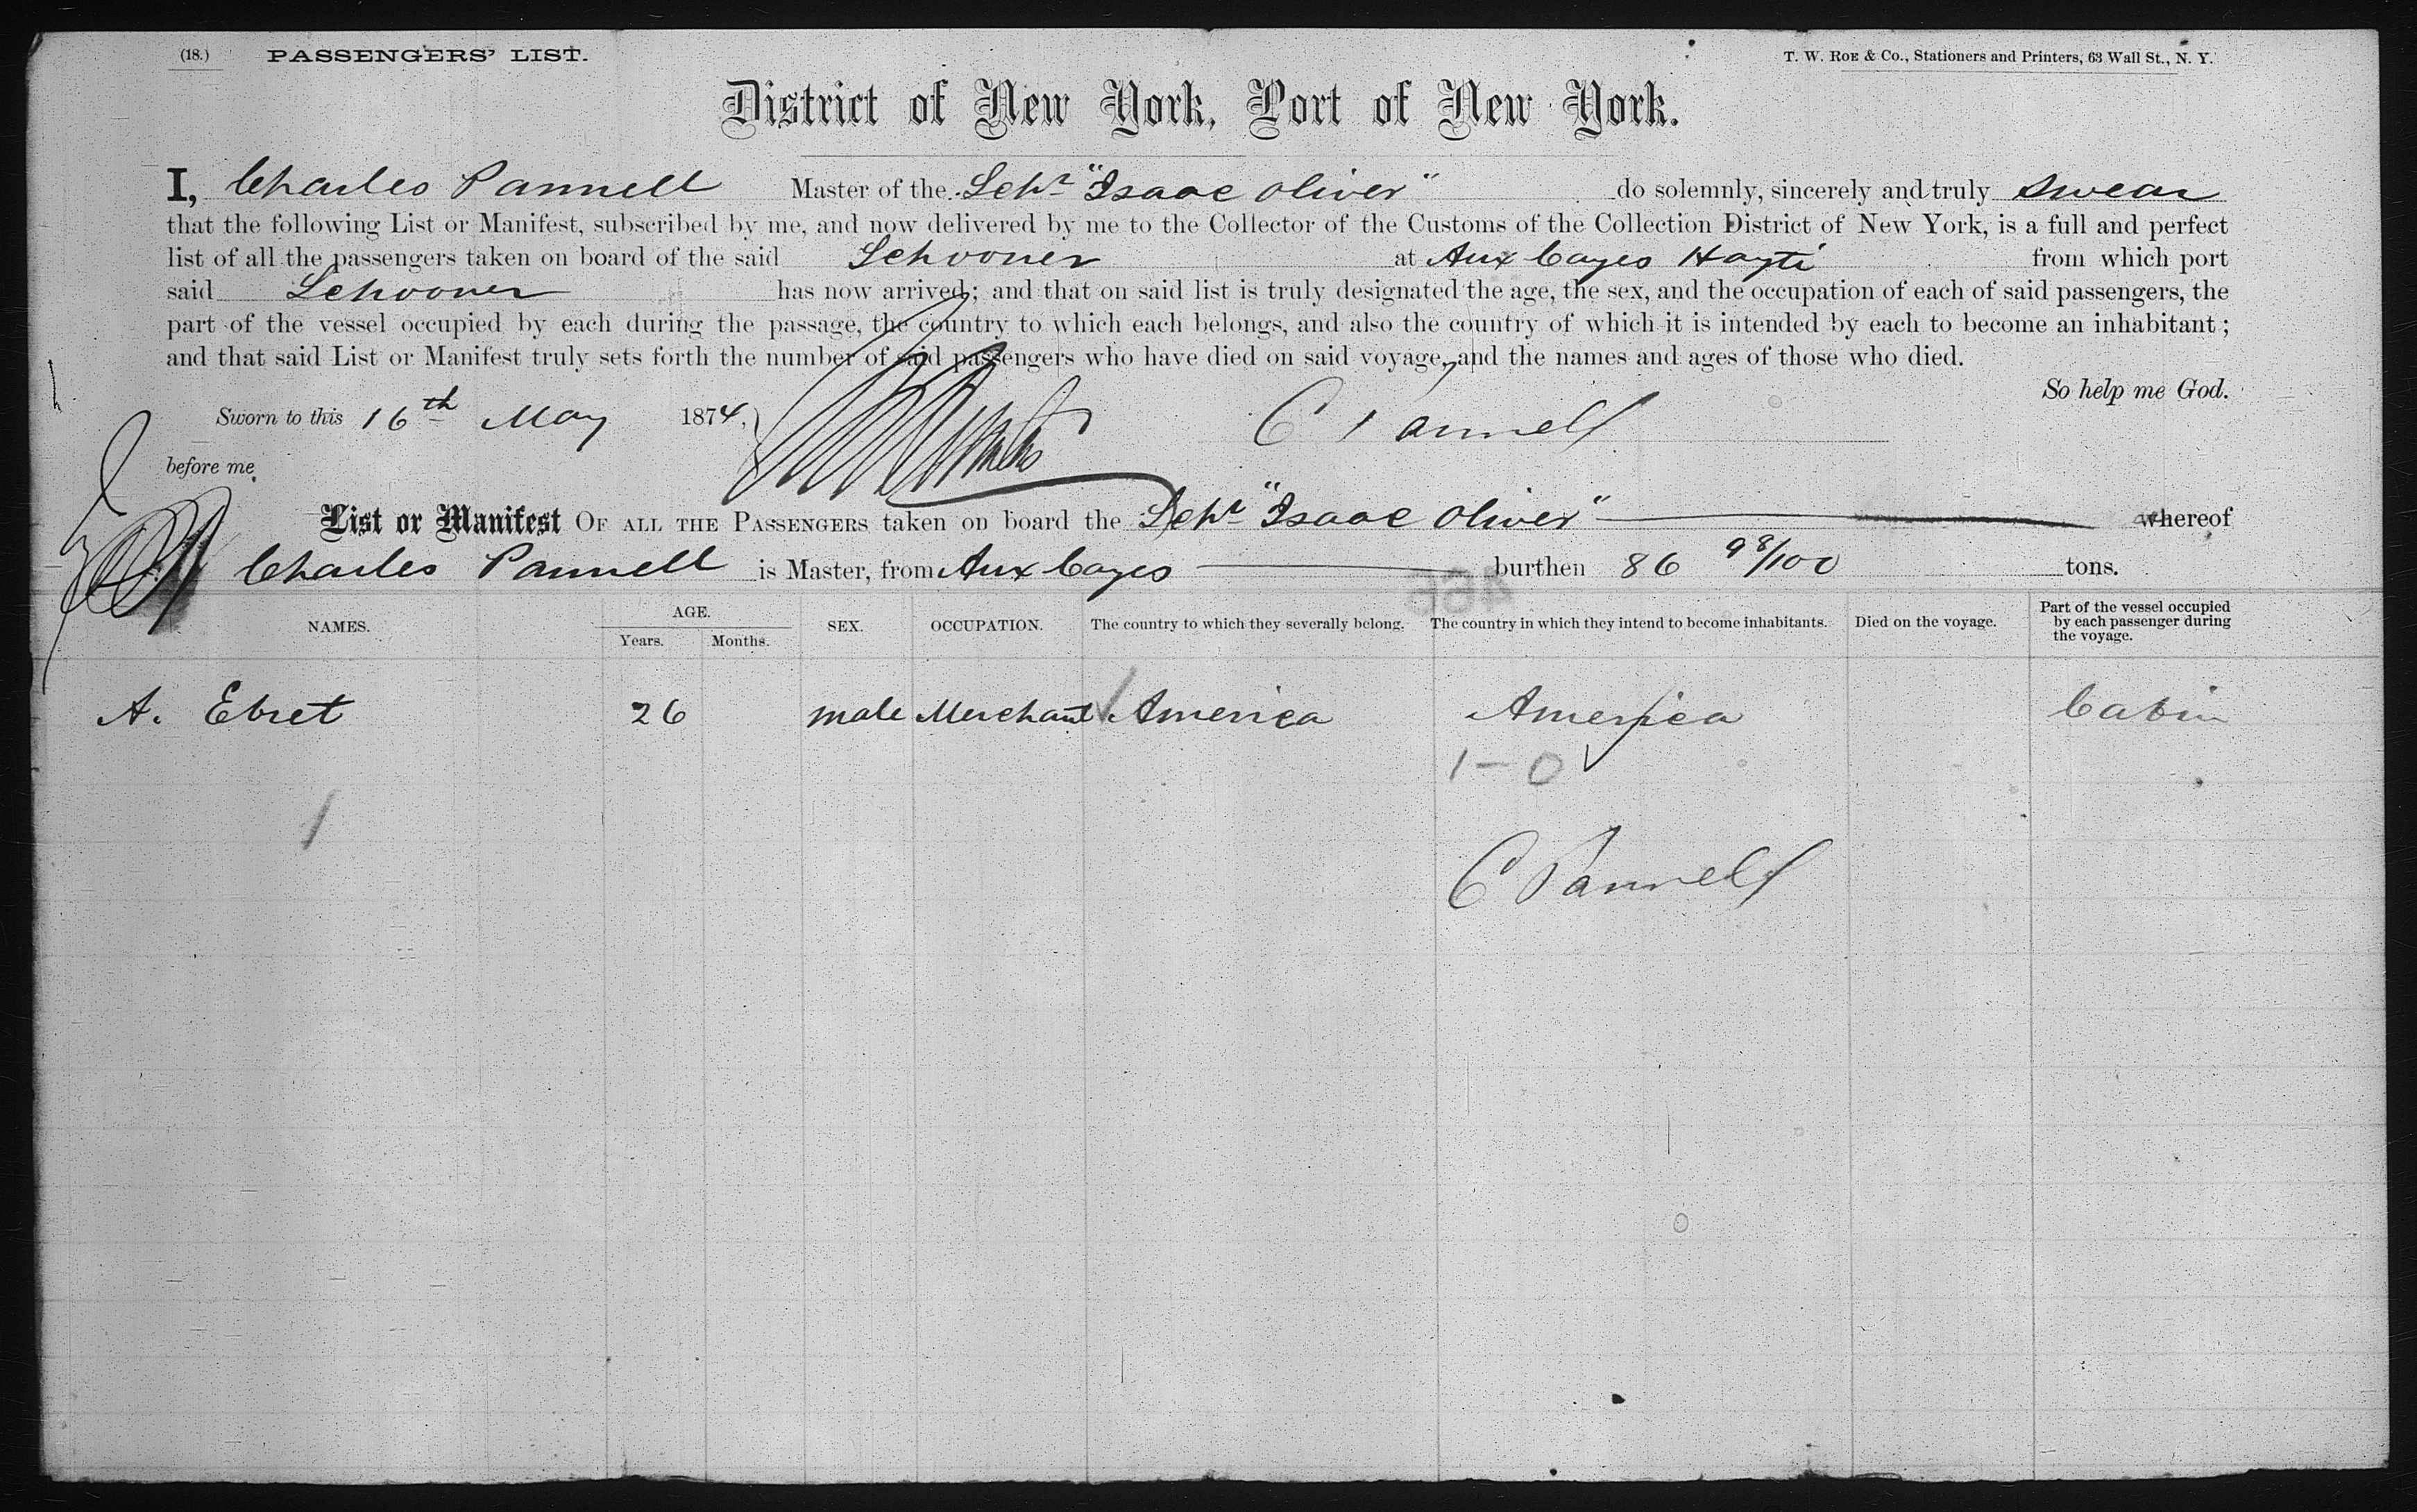 (18.) PASSENGERS' LIST. T. W. ROE & Co., Stationers and Printers, 63 Wall St., N. Y.
District of New York, Port of New York.
I, Charles Pannell Master of the Schr "Isaac Oliver" do solemnly, sincerely and truly swear
that the following List or Manifest, subscribed by me, and now delivered by me to the Collector of the Customs of the Collection District of New York, is a full and perfect
list of all the passengers taken on board of the said Schooner at Aux Cayes Hayti from which port
said Schooner has now arrived; and that on said list is truly designated the age, the sex, and the occupation of each of said passengers, the
part of the vessel occupied by each during the passage, the country to which each belongs, and also the country of which it is intended by each to become an inhabitant;
and that said List or Manifest truly sets forth the number of said passengers who have died on said voyage, and the names and ages of those who died.
So help me God.
Sworn to this 16th May 1874, C Pannell
before me
List or Manifest OF ALL THE PASSENGERS taken on board the Schr "Isaac Oliver" whereof
Charles Pannell is Master, from Aux Cayes burthen 86 98/100 tons.
NAMES. AGE. Years. Months. SEX. OCCUPATION. The country to which they severally belong. The country in which they intend to become inhabitants. Died on the voyage. Part of the vessel occupied by each passenger during the voyage.
A. Ebret 26 male Merchant America America Cabin
1-0
1
C Pannell